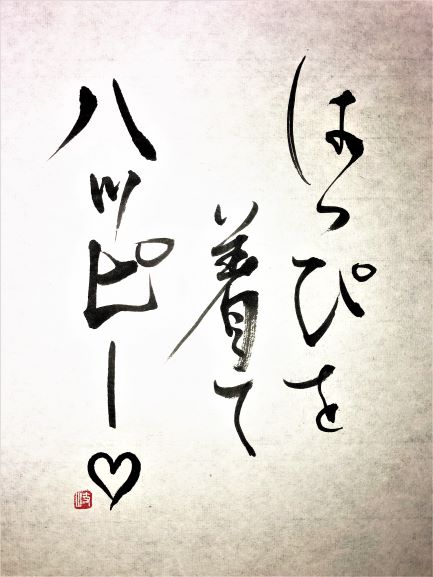 はっぴを
着て
ハッピー♡